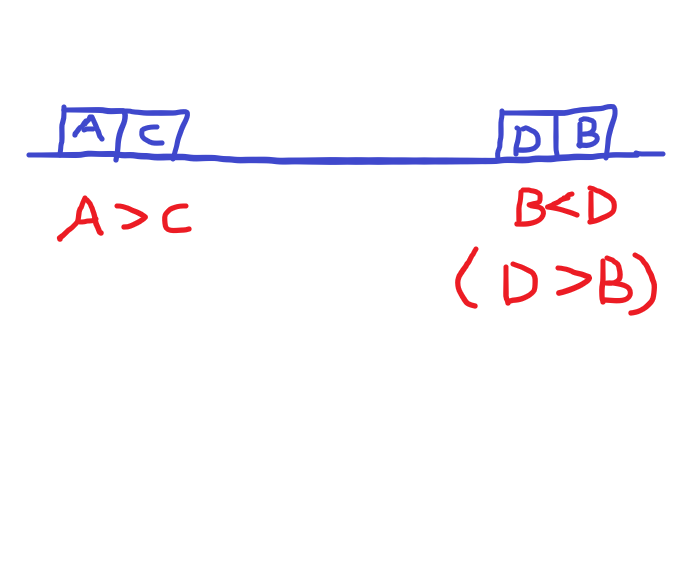 A C D B
A > C B < D
( D > B )